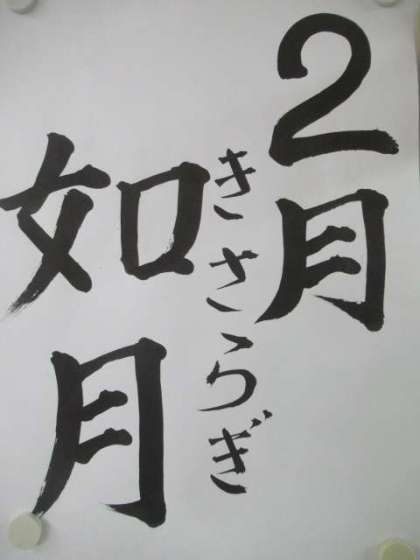 2月
きさらぎ
如月